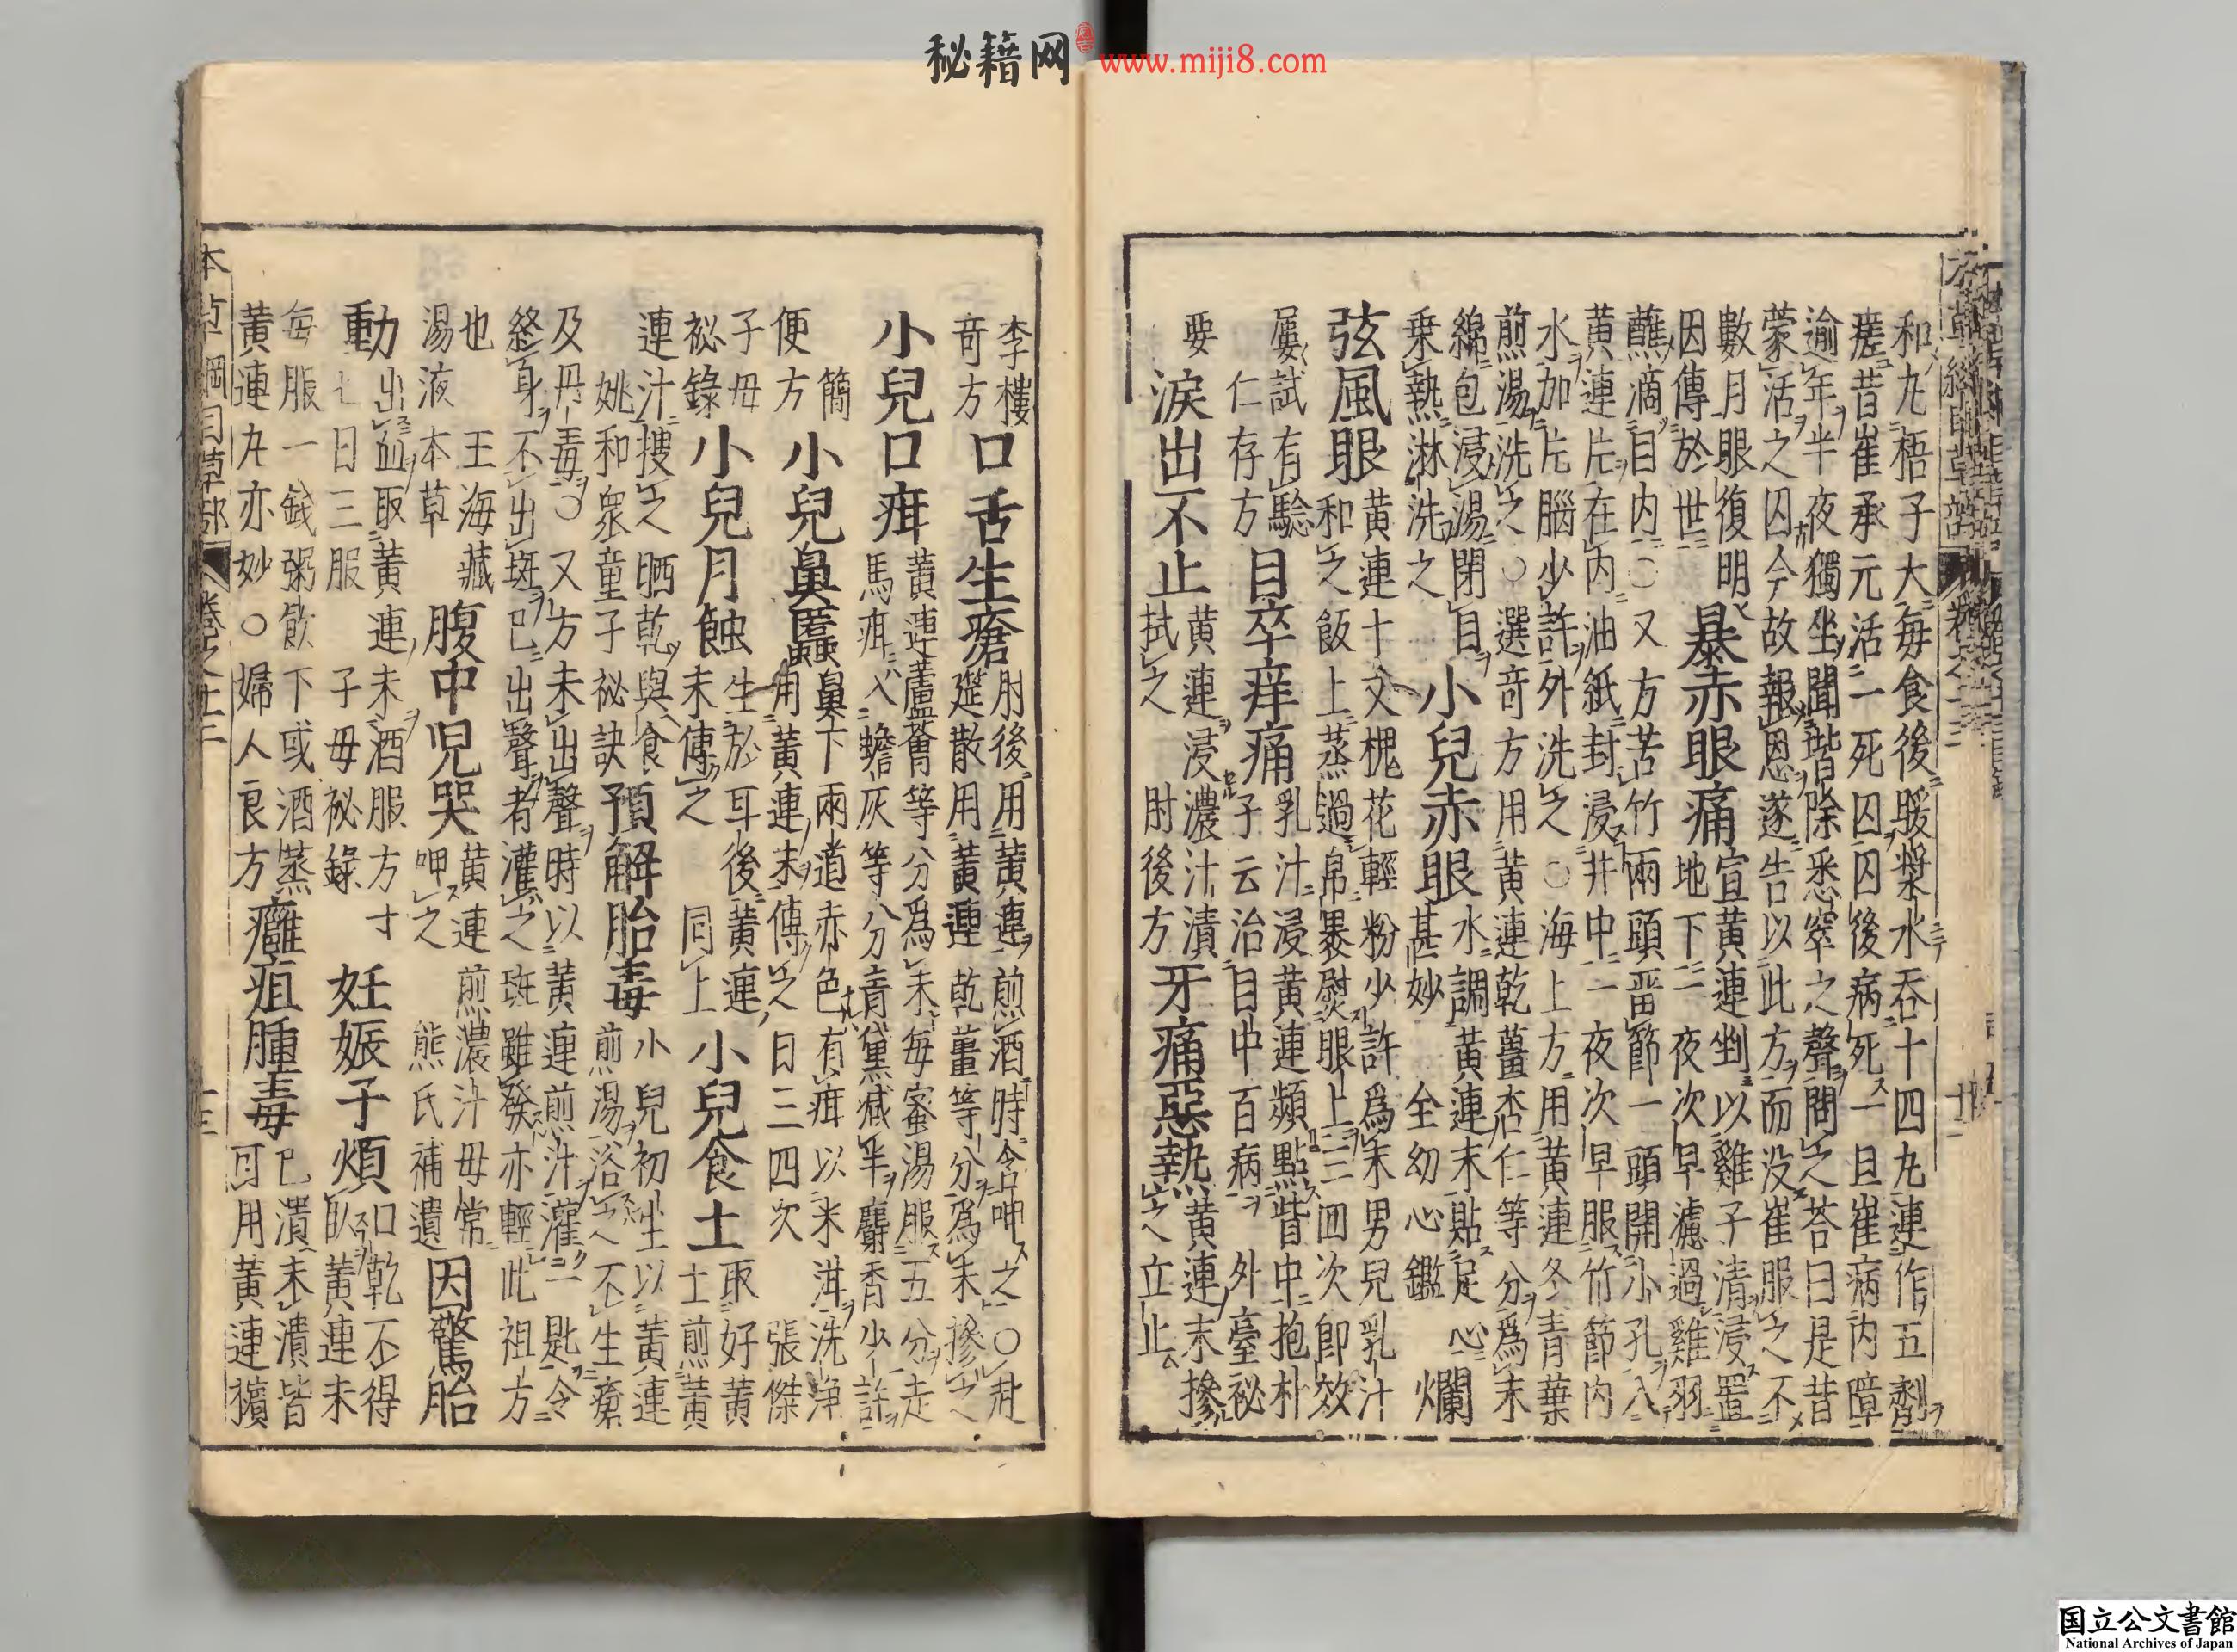 秘籍网 www.miji8.com
和丸梧子大每食後暖漿水吞十四丸連作五劑
瘥昔崔承元活一死囚囚後病死一旦崔病内障
逾年半夜獨坐聞堦除悉窣之聲問之荅曰是昔
蒙活之囚今故報恩遂告以此方而没崔服之不
數月眼復明
因傳於世
暴赤眼痛
宣黄連剉以雞子清浸置
地下一夜次早濾過雞羽
蘸滴目内○又方苦竹兩頭畱節一頭開小孔入
黄連片在内油紙封浸井中一夜次早服竹節内
水加片腦少許外洗之○海上方用黄連冬青葉
煎湯洗之○選竒方用黄連乾薑杏仁等分為末
綿包浸湯閉目
乗熱淋洗之
小兒赤眼
水調黄連末貼足心
甚妙 全幼心鑑
爛
弦風眼
黄連十文槐花輕粉少許為末男兒乳汁
和之飯上蒸過帛褁熨眼上三四次即效
屢試有驗
仁存方
目卒痒痛
乳汁浸黄連頻點眥中抱朴
子云治目中百病 外臺祕
要
淚出不止
黄連浸濃汁漬
拭之 肘後方
牙痛惡熱
黄連末摻
之立止
李樓
竒方
口舌生瘡
肘後用黄連煎酒時含呷之○赴
筵散用黄連乾薑等分為末摻之
小兒口疳
黄連蘆薈等分為末每蜜湯服五分走
馬疳入蟾灰等分青黛減半麝香少許
簡
便方
小兒鼻䘌
鼻下兩道赤色有疳以米泔洗净
用黄連末傅之日三四次 張傑
子母
祕錄
小兒月蝕
生於耳後黄連
末傅之 同上
小兒食土
取好黄
土煎黄
連汁搜之晒乾與食
姚和衆童子祕訣
預解胎毒
小兒初生以黄連
煎湯浴之不生瘡
及丹毒○又方未出聲時以黄連煎汁灌一匙令
終身不出斑已出聲者灌之斑雖發亦輕此祖方
也 王海藏
湯液本草
腹中兒哭
黄連煎濃汁母常
呷之 熊氏補遺
因驚胎
動出血取黄連末酒服方寸
七日三服 子母祕錄
妊娠子煩
口乾不得
臥黄連末
每服一錢粥飲下或酒蒸
黄連丸亦妙○婦人良方
癰疽腫毒
已潰未潰皆
可用黄連檳
本草綱目草部 卷之十三 十三
国立公文書館
National Archives of Japan